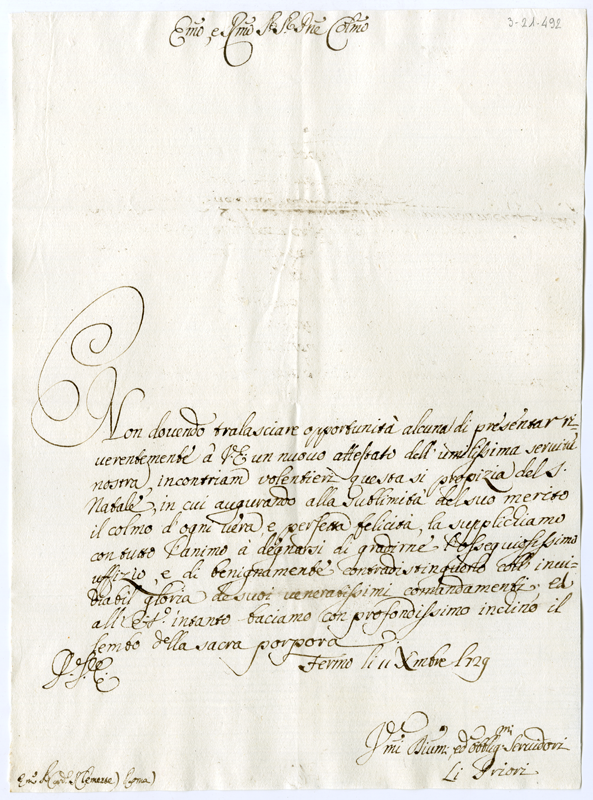 3-21-492
Emo, e Rmo Sig.r Sig.r Pne Colmo
Non dovendo tralasciare opportunità alcuna di presentar ri-
verentemente à V.E. un nuovo attestato dell' umilissima servitù
nostra, incontriam volentieri questa sì propizia del S.
Natale, in cui augurando alla sublimità del suo merito
il colmo d'ogni vera, e perfetta felicità, la supplichiamo
con tutto l'animo à degnarsi di gradirne l'ossequiosissimo
uffizio, e di benignamente contradistinguerlo coll' invi-
diabil gloria de suoi veneratissimi comandamenti, ed
all' intanto baciamo con profondissimo inclino il
lembo della sacra porpora
Fermo li 11 Xmbre 1729
Di V. E.
Umi Divmi ed obbligmi Servidori
Li Priori
Emo Sr Card.
Roma